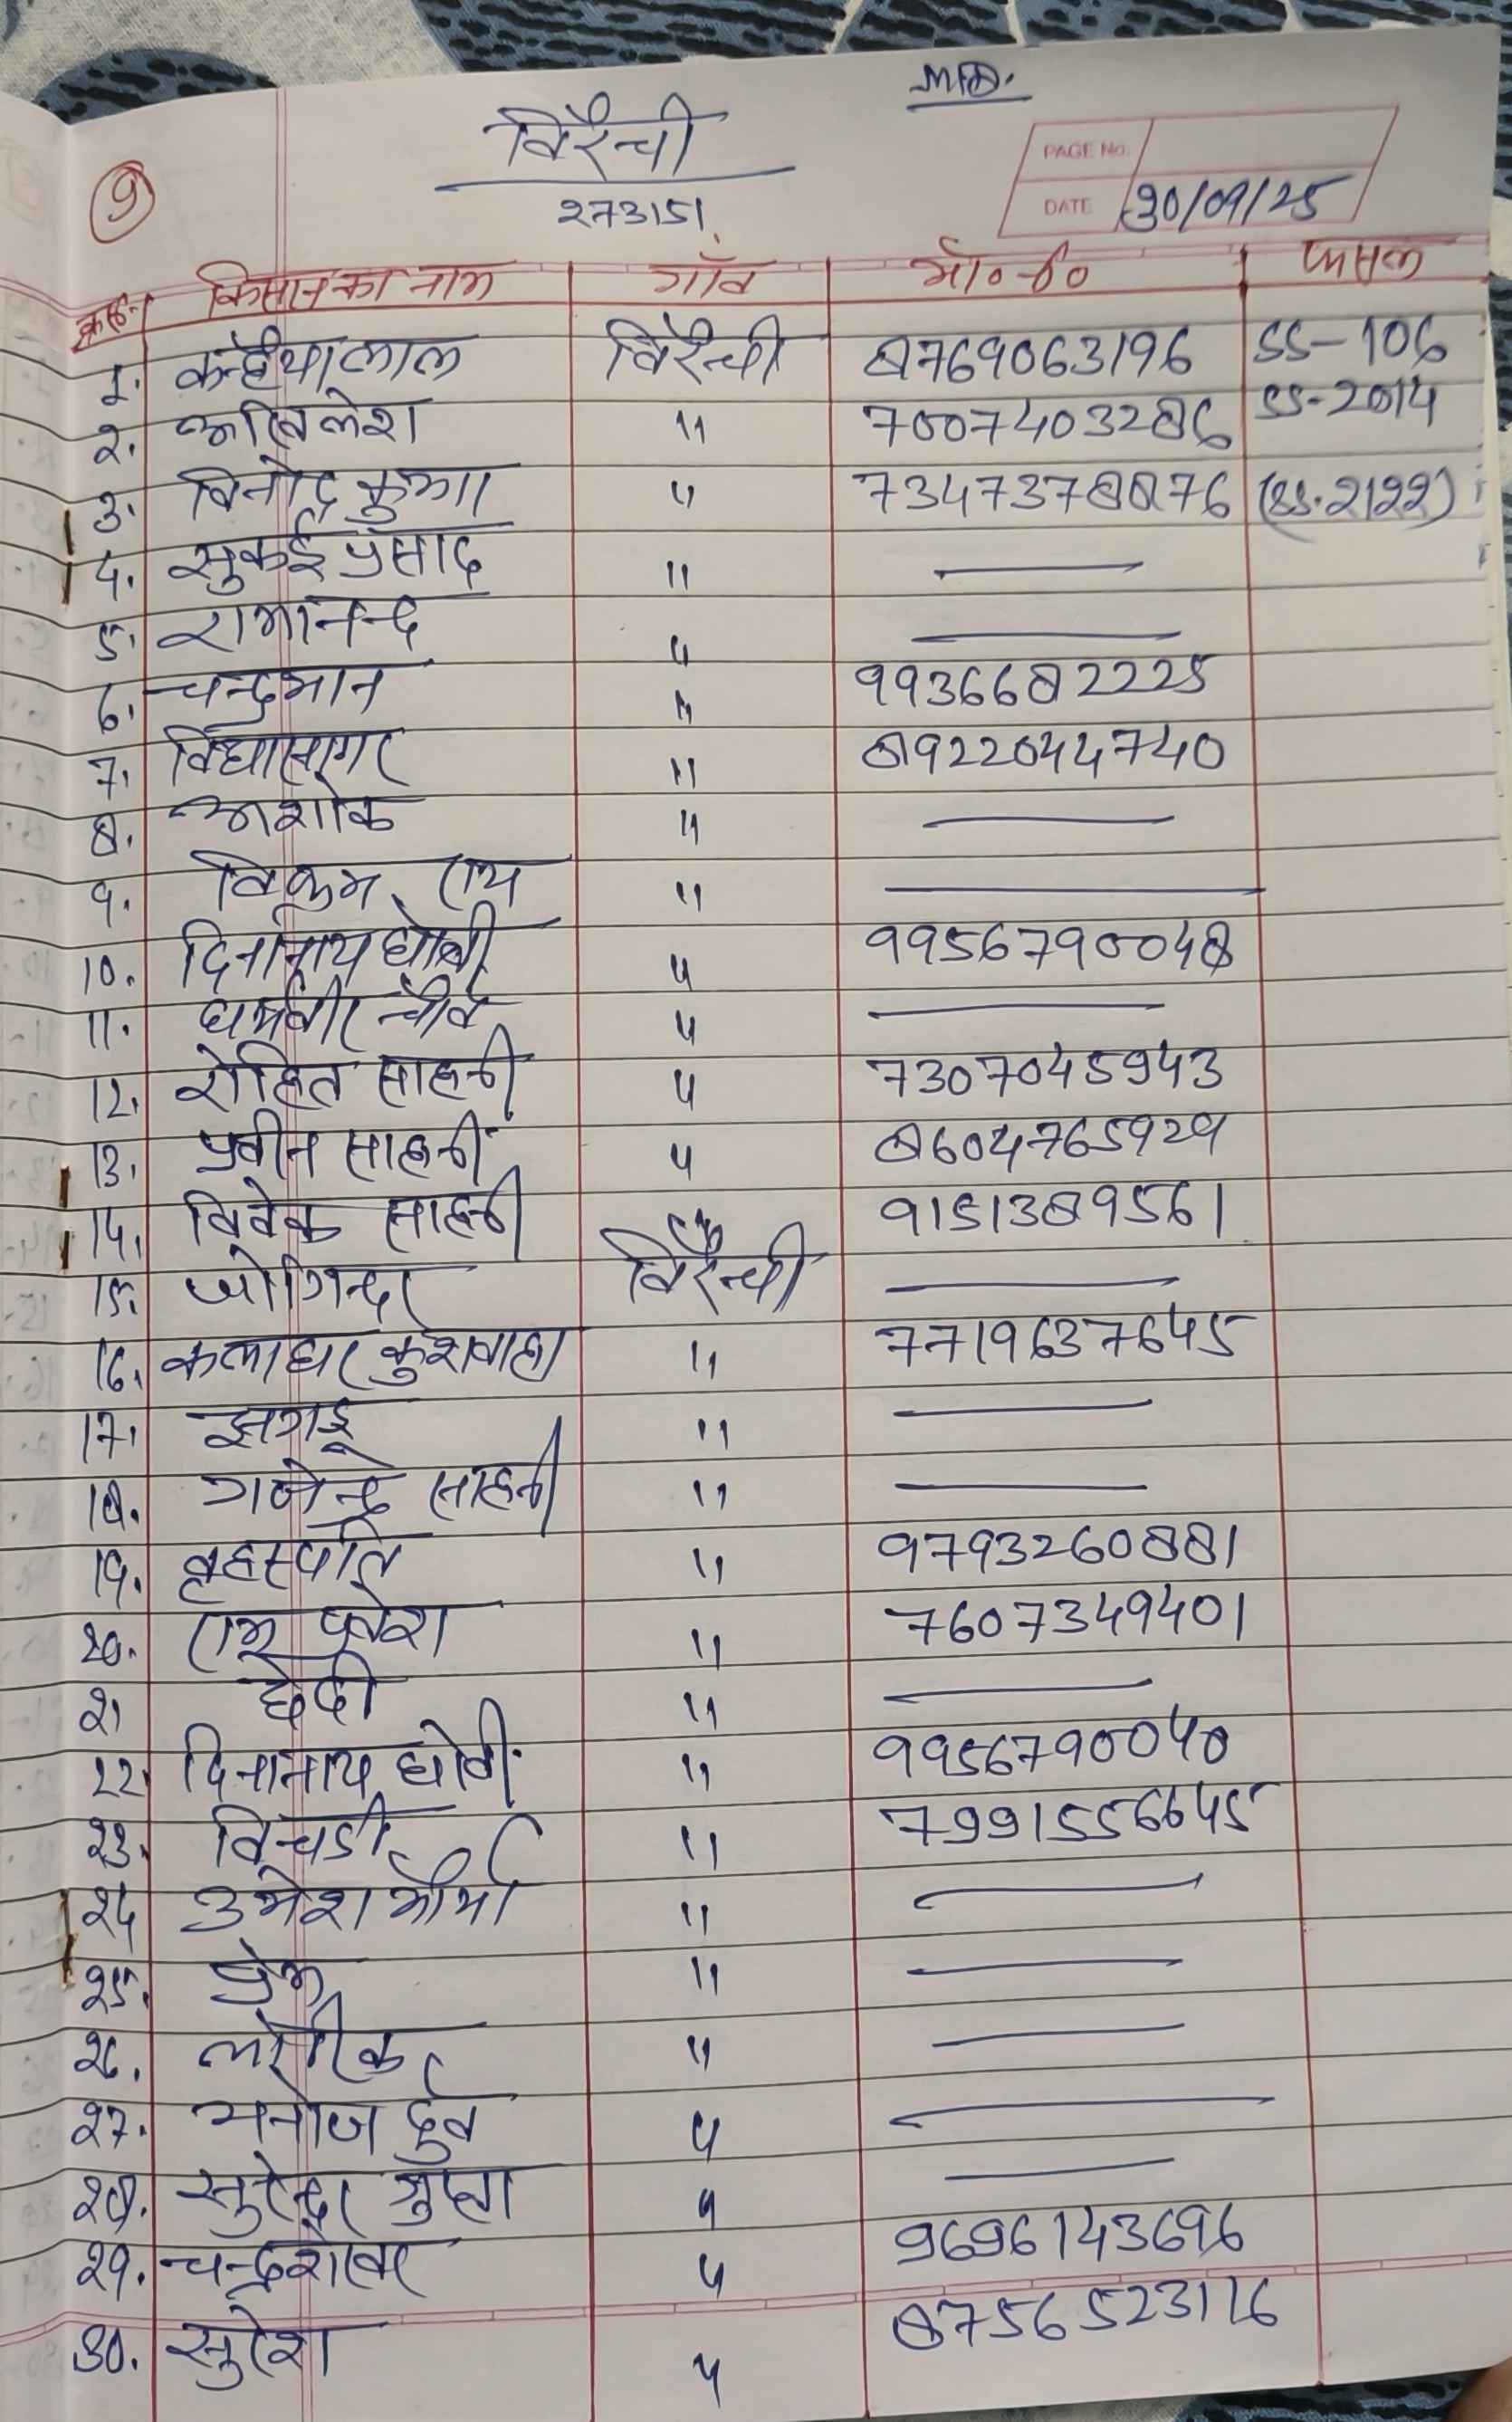 MFD.
विरैची
273151
9
PAGE NO.
DATE 30/09/25
क्र०सं० किसान का नाम गाँव मो०-नं० फसल
1. कन्हैयालाल विरैची 8769063196 SS-106
2. अखिलेश " 7007403286 SS-2014
3. विनोद कुमार " 7347378876 (SS.2122)
4. सुकई प्रसाद " —
5. रामानन्द " —
6. चन्द्रभान " 9936682225
7. विद्यासागर " 8922044740
8. अशोक " —
9. विक्रम राय " —
10. दिनानाथ धोबी " 9956790048
11. धर्मवीर चौबे " —
12. रोहित साहनी " 7307045943
13. प्रवीन साहनी " 8604765929
14. विवेक साहनी " 9151389561
15. जोगिन्दर विरैची —
16. कलाधर कुशवाहा " 7719637645
17. झगडू " —
18. गजेन्द्र साहनी " —
19. बृहस्पति " 9793260881
20. राम प्रवेश " 7607349401
21 छेदी " —
22. दिनानाथ धोबी " 9956790040
23. विचडी " 7991556645
24 उमेश मौर्या " —
25. प्रेम " —
26. लोरिक " —
27. मनोज दुबे " —
28. सुरेन्द्र गुप्ता " —
29. चन्द्रशेखर " 9696143696
30. सुरेश " 8756523116